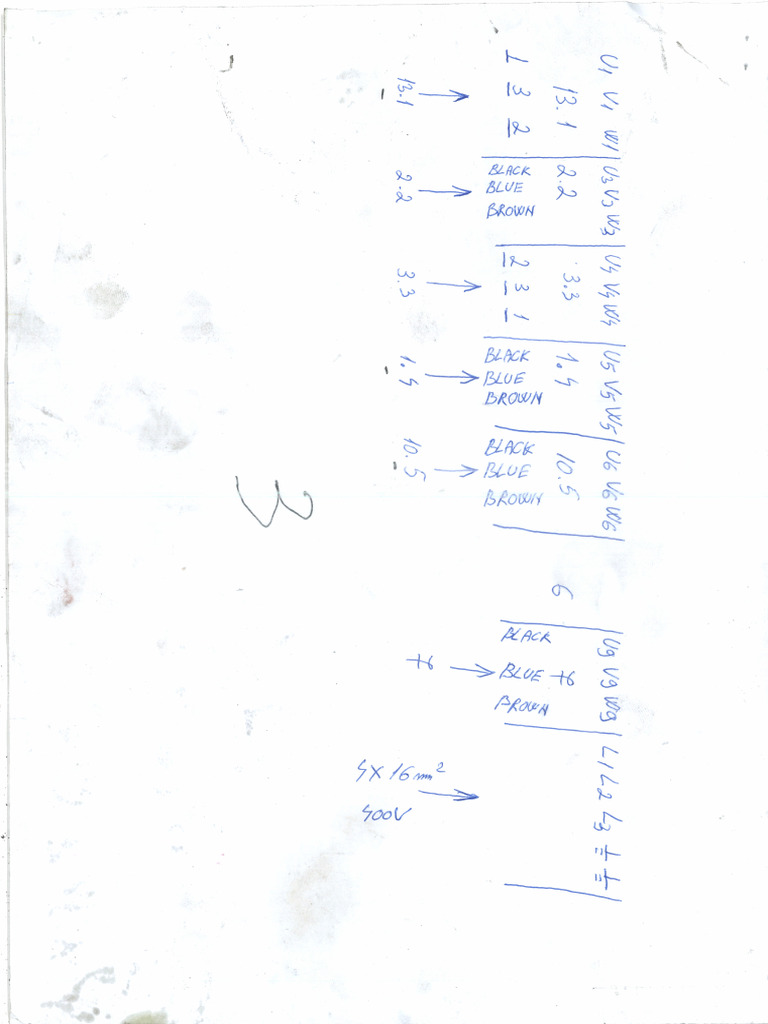 U1 V1 W1 | U3 V3 W3 | U4 V4 W4 | U5 V5 W5 | U6 V6 W6 | U9 V9 W9 | L1 L2 L3 ⏚ ⏚
13.1 2.2 3.3 1.4 10.5 6 7
1 3 2
BLACK
BLUE
BROWN
2 3 1
BLACK
BLUE
BROWN
BLACK
BLUE
BROWN
BLACK
BLUE
BROWN
13.1 → 2.2 → 3.3 → 1.4 → 10.5 → 7 →
4X16mm² →
400V